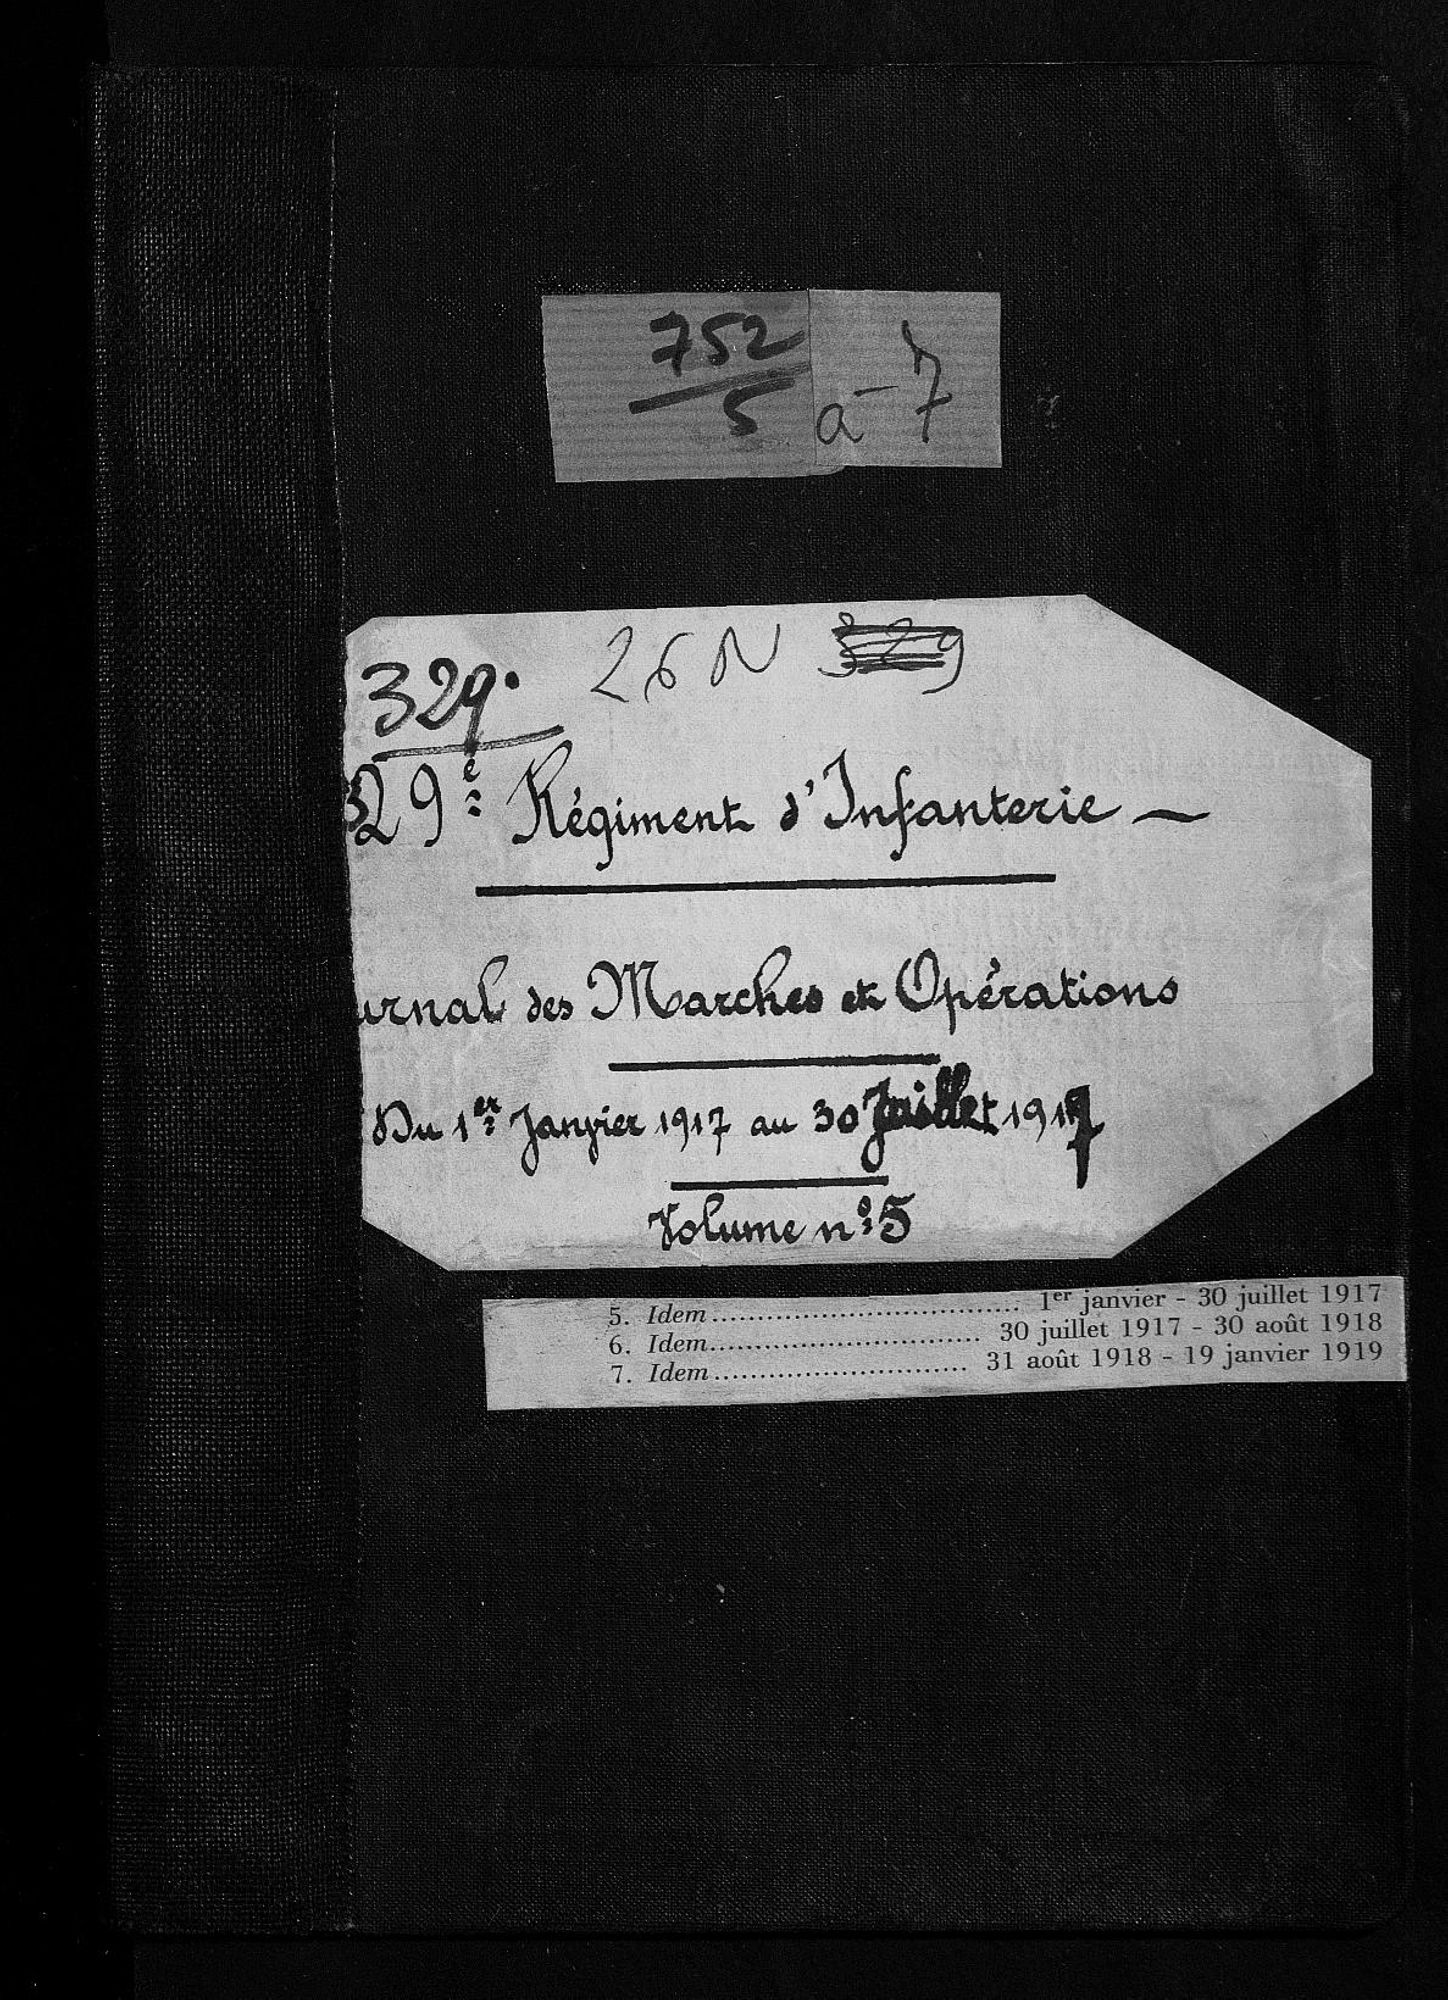 752
5 à 7
329.
26 N 329
329e Régiment d'Infanterie —
urnal des Marches et Opérations
Du 1er Janvier 1917 au 30 Juillet 1917
Volume n° 5
5. Idem .................................. 1er janvier - 30 juillet 1917
6. Idem ............................. 30 juillet 1917 - 30 août 1918
7. Idem ........................... 31 août 1918 - 19 janvier 1919